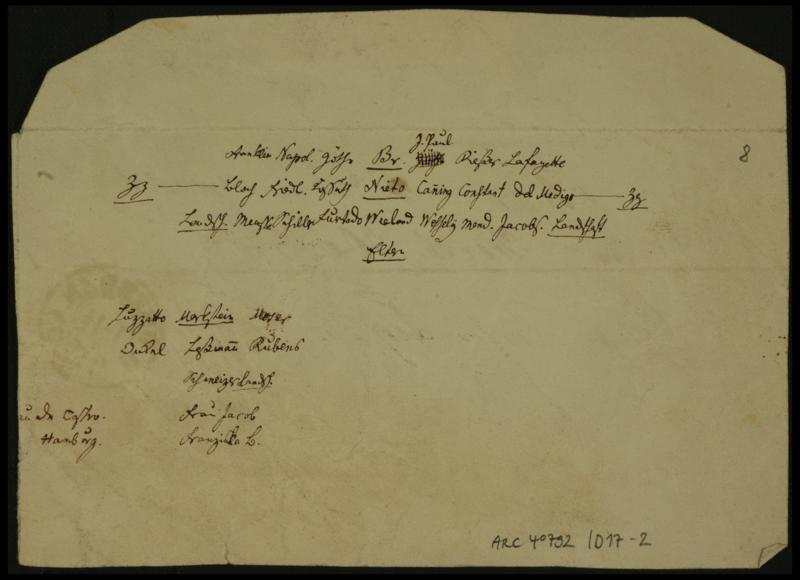 J. Paul
Franklin Napol. Göthe Br. Rießer Lafayette
8
Bloch Friedl. Nieto Caning Constant Del Medigo
Landsch. Schiller Furtado Wieland Wessely Mend. Jacobs. Landschaft
Eltern
Luzzatto Markstein Moser
Onkel Leßmann Rubens
Schweizerlandsch.
Castro. Frau Jacob
Hamburg. Franziska B.
ARC 4°792 /D17-2